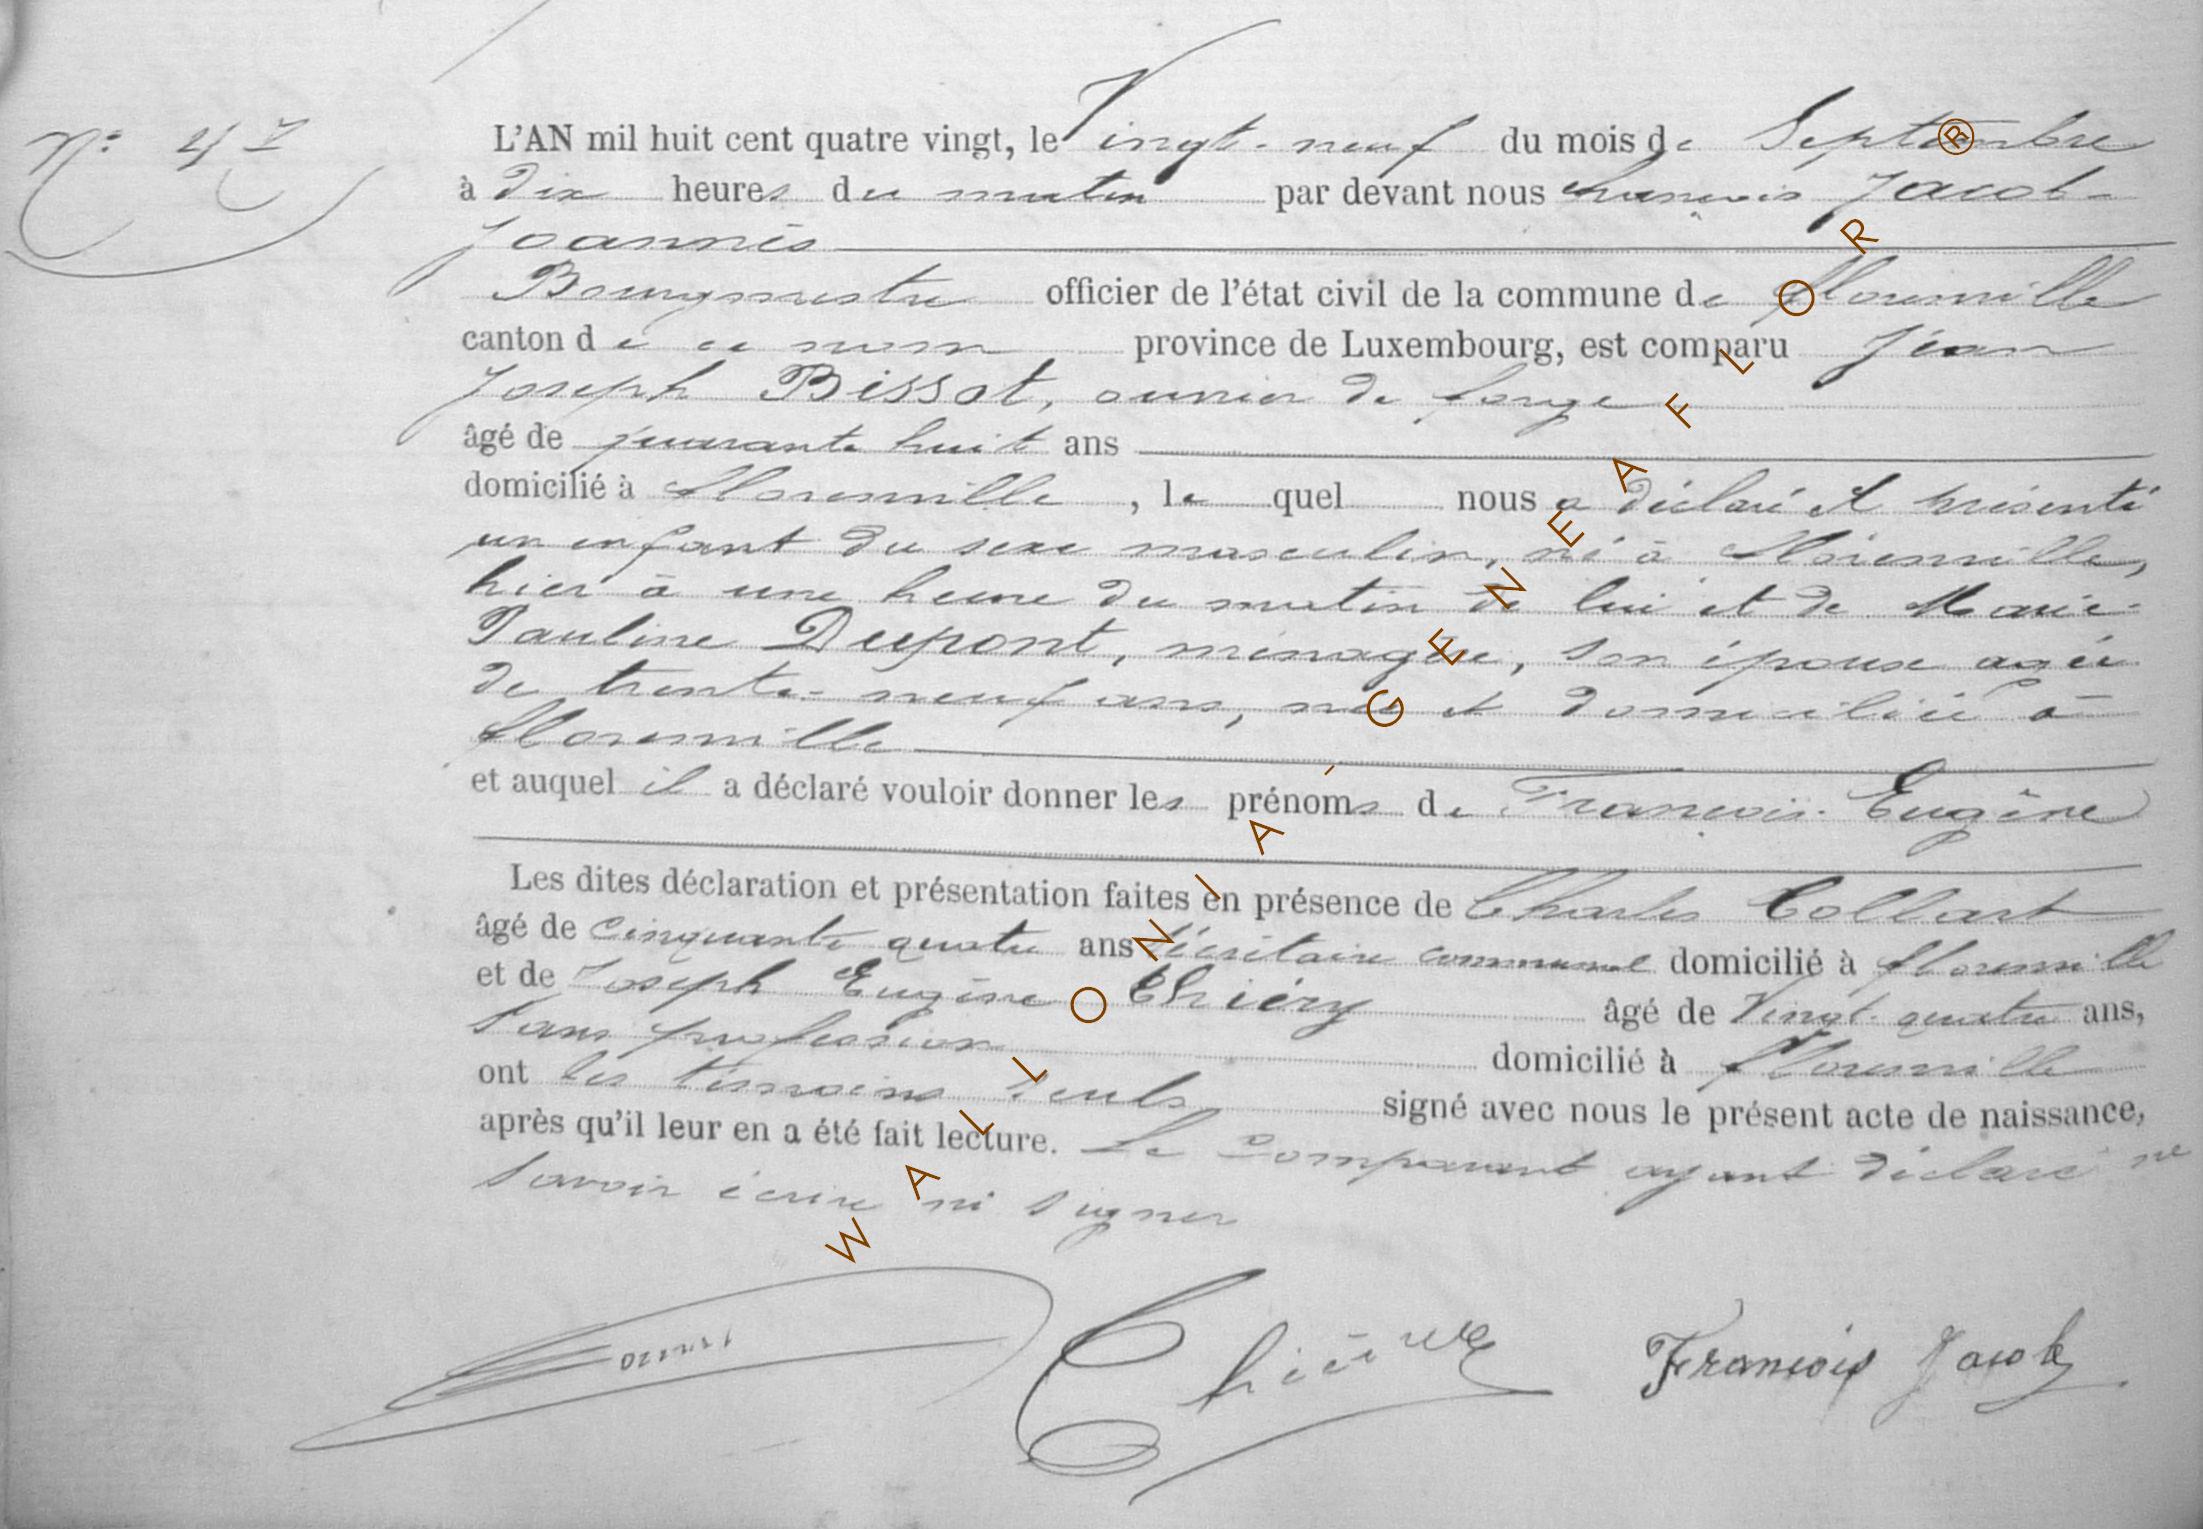 N° 47
L'AN mil huit cent quatre vingt, le Vingt-neuf du mois de Septembre
à dix heures du matin par devant nous François Jacob-
Joannès
Bourgmestre officier de l'état civil de la commune de Florenville
canton de ce nom province de Luxembourg, est comparu Jean
Joseph Bissot, ouvrier de forge
âgé de quarante huit ans
domicilié à Florenville, le quel nous a déclaré et présenté
un enfant du sexe masculin, né à Florenville,
hier à une heure du matin de lui et de Marie-
Pauline Dupont, ménagère, son épouse agée
de trente-neuf ans, née et domiciliée à
Florenville
et auquel il a déclaré vouloir donner les prénoms de François-Eugène
Les dites déclaration et présentation faites en présence de Charles Collart
âgé de cinquante quatre ans secrétaire communal domicilié à Florenville
et de Joseph Eugène Thiéry âgé de Vingt-quatre ans,
sans profession domicilié à Florenville
ont les témoins seuls signé avec nous le présent acte de naissance,
après qu'il leur en a été fait lecture. Le Comparant ayant déclaré ne
savoir écrire ni signer
François Jacob
WALLONIA-GENEAFLOR®